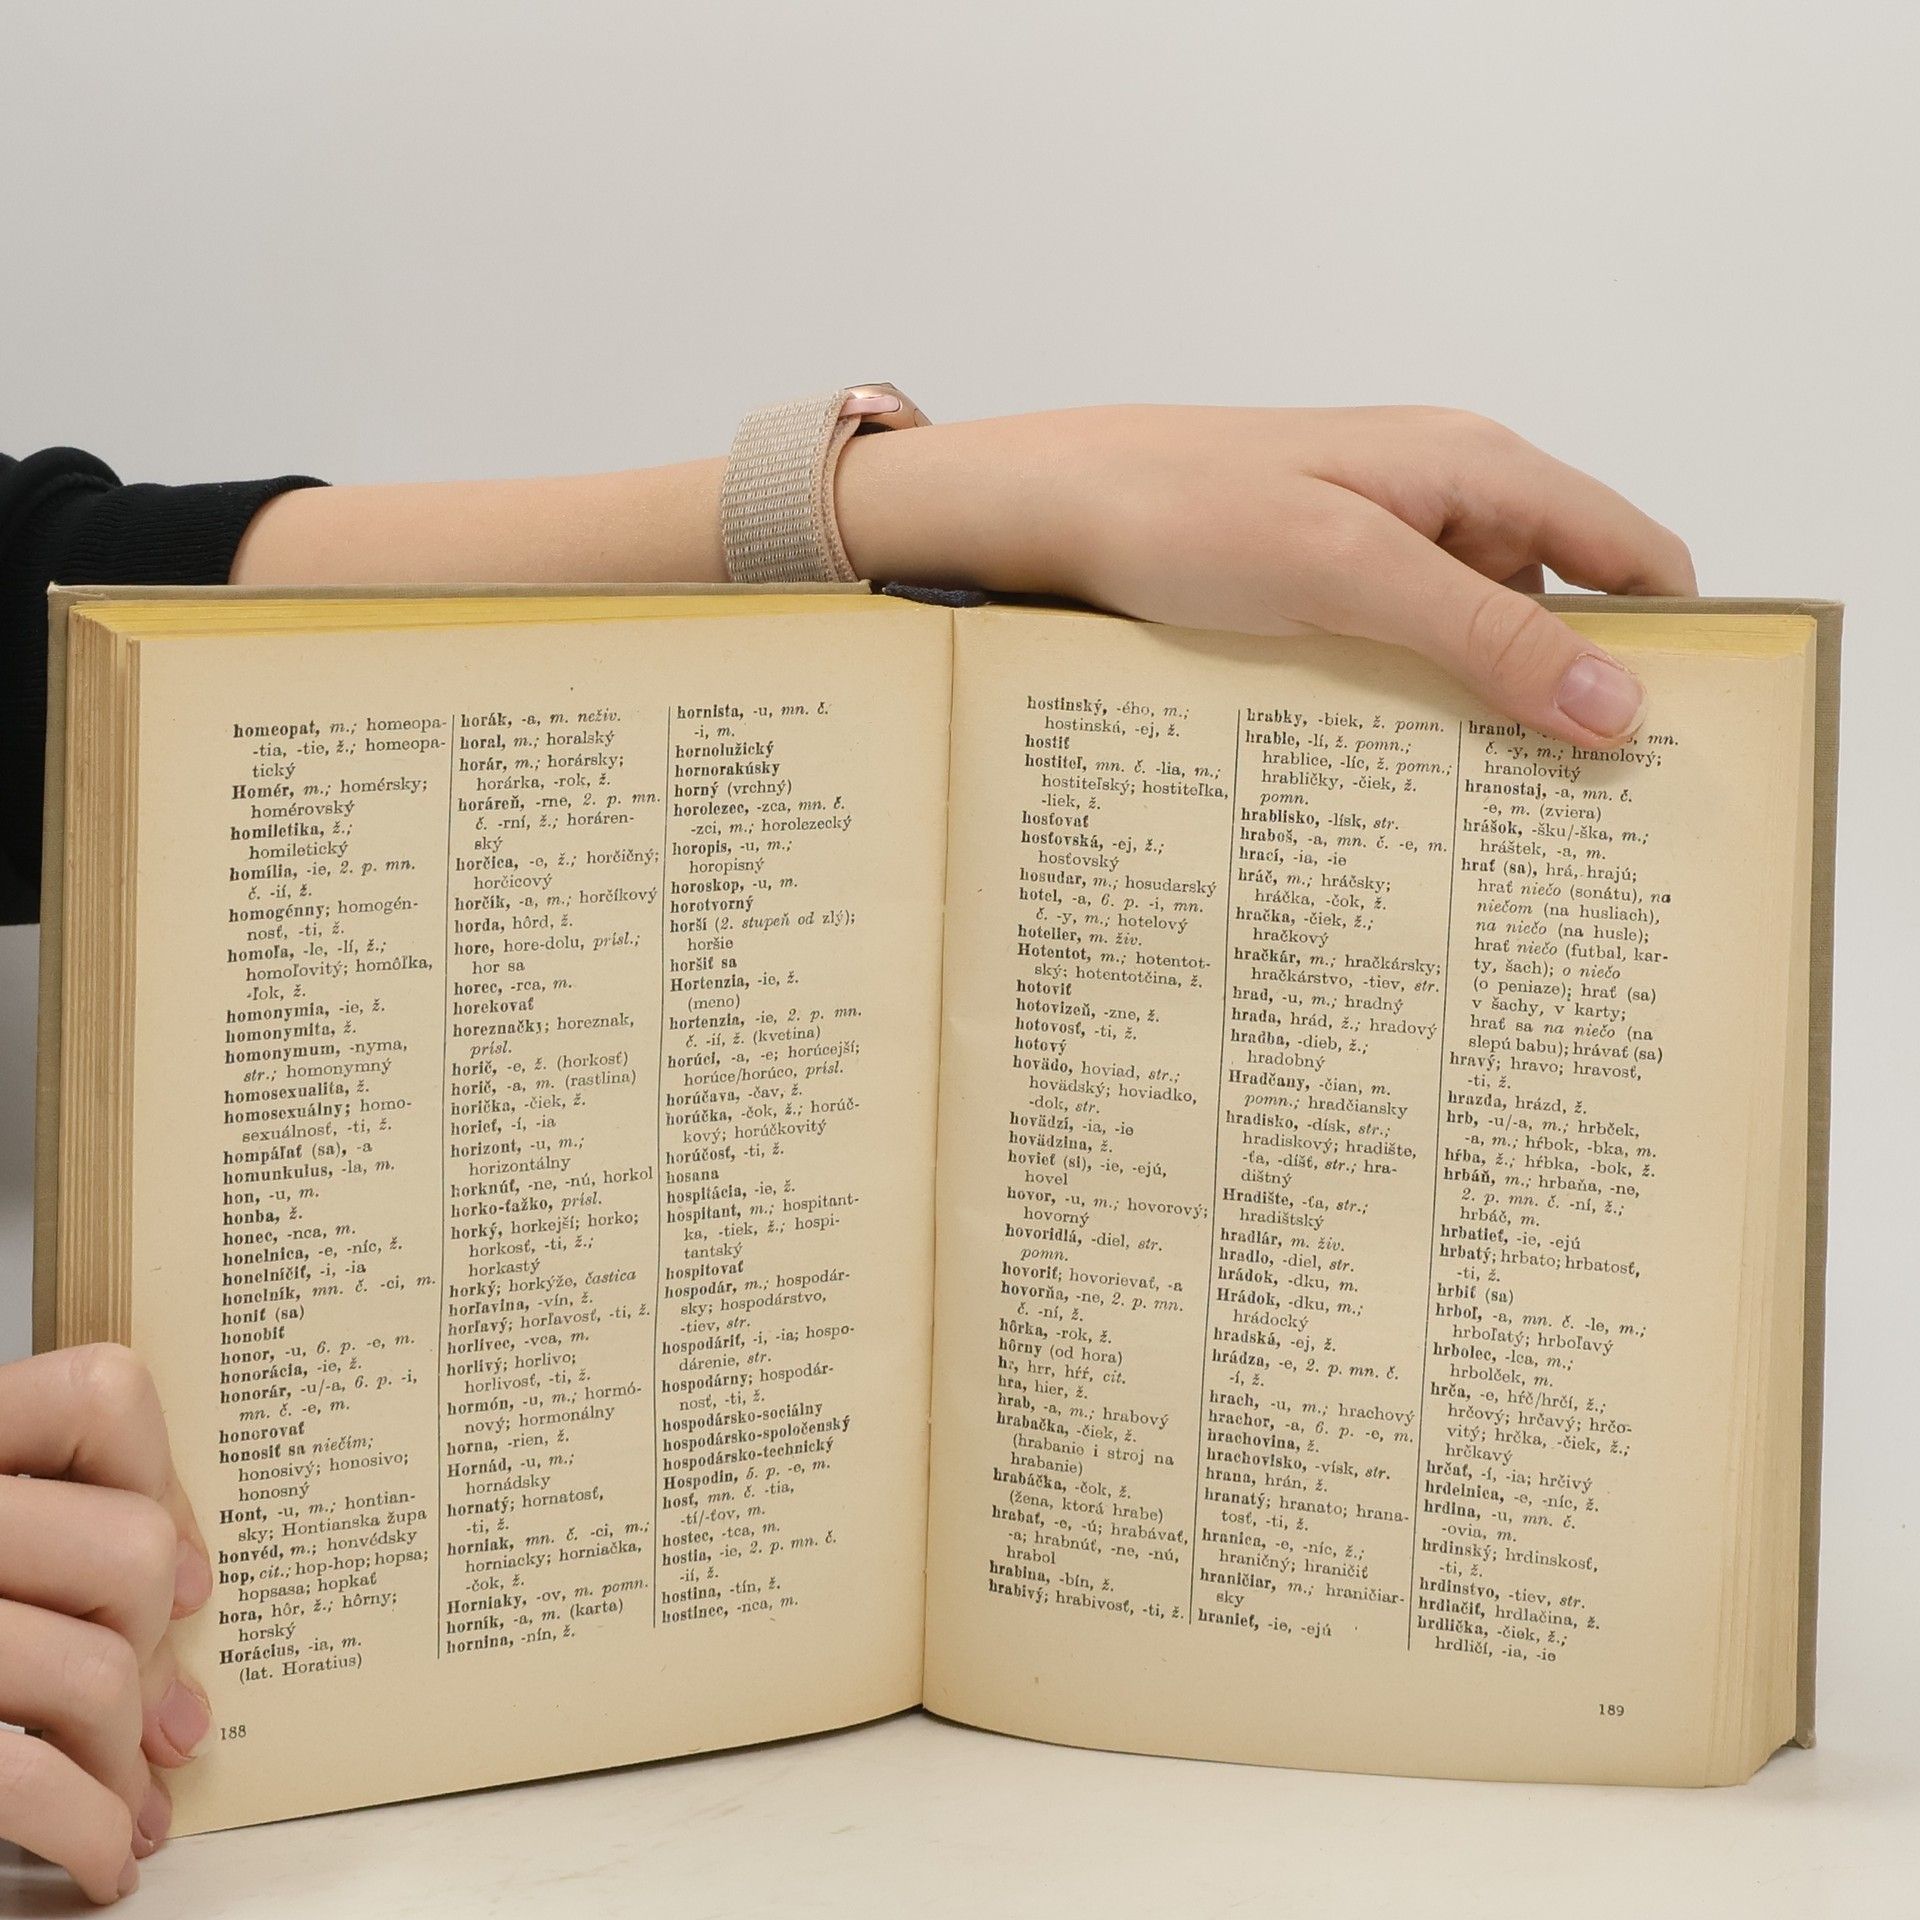 homeopat, m.; homeopa-
-tia, -tie, ž.; homeopa-
tický
Homér, m.; homérsky;
homérovský
homiletika, ž.;
homiletický
homília, -ie, 2. p. mn.
č. -ií, ž.
homogénny; homogén-
nosť, -ti, ž.
homoľa, -le, -lí, ž.;
homoľovitý; homôľka,
-ľok, ž.
homonymia, -ie, ž.
homonymita, ž.
homonymum, -nyma,
str.; homonymný
homosexualita, ž.
homosexuálny; homo-
sexuálnosť, -ti, ž.
hompáľať (sa), -a
homunkulus, -la, m.
hon, -u, m.
honba, ž.
honec, -nca, m.
honelnica, -e, -níc, ž.
honelníčiť, -i, -ia
honelník, mn. č. -ci, m.
honiť (sa)
honobiť
honor, -u, 6. p. -e, m.
honorácia, -ie, ž.
honorár, -u/-a, 6. p. -i,
mn. č. -e, m.
honorovať
honosiť sa niečím;
honosivý; honosivo;
honosný
Hont, -u, m.; hontian-
sky; Hontianska župa
honvéd, m.; honvédsky
hop, cit.; hop-hop; hopsa;
hopsasa; hopkať
hora, hôr, ž.; hôrny;
horský
Horácius, -ia, m.
(lat. Horatius)
horák, -a, m. neživ.
horal, m.; horalský
horár, m.; horársky;
horárka, -rok, ž.
horáreň, -rne, 2. p. mn.
č. -rní, ž.; horáren-
ský
horčica, -e, ž.; horčičný;
horčicový
horčík, -a, m.; horčíkový
horda, hôrd, ž.
hore, hore-dolu, prísl.;
hor sa
horec, -rca, m.
horekovať
horeznačky; horeznak,
prísl.
horič, -e, ž. (horkosť)
horič, -a, m. (rastlina)
horička, -čiek, ž.
horieť, -í, -ia
horizont, -u, m.;
horizontálny
horknúť, -ne, -nú, horkol
horko-ťažko, prísl.
horký, horkejší; horko;
horkosť, -ti, ž.;
horkastý
horký; horkýže, častica
horľavina, -vín, ž.
horľavý; horľavosť, -ti, ž.
horlivec, -vca, m.
horlivý; horlivo;
horlivosť, -ti, ž.
hormón, -u, m.; hormó-
nový; hormonálny
horna, -rien, ž.
Hornád, -u, m.;
hornádsky
hornatý; hornatosť,
-ti, ž.
horniak, mn. č. -ci, m.;
horniacky; horniačka,
-čok, ž.
Horniaky, -ov, m. pomn.
horník, -a, m. (karta)
hornina, -nín, ž.
hornista, -u, mn. č.
-i, m.
hornolužický
hornorakúsky
horný (vrchný)
horolezec, -zca, mn. č.
-zci, m.; horolezecký
horopis, -u, m.;
horopisný
horoskop, -u, m.
horotvorný
horší (2. stupeň od zlý);
horšie
horšiť sa
Hortenzia, -ie, ž.
(meno)
hortenzia, -ie, 2. p. mn.
č. -ií, ž. (kvetina)
horúci, -a, -e; horúcejší;
horúce/horúco, prísl.
horúčava, -čav, ž.
horúčka, -čok, ž.; horúč-
kový; horúčkovitý
horúčosť, -ti, ž.
hosana
hospitácia, -ie, ž.
hospitant, m.; hospitant-
ka, -tiek, ž.; hospi-
tantský
hospitovať
hospodár, m.; hospodár-
sky; hospodárstvo,
-tiev, str.
hospodáriť, -i, -ia; hospo-
dárenie, str.
hospodárny; hospodár-
nosť, -ti, ž.
hospodársko-sociálny
hospodársko-spoločenský
hospodársko-technický
Hospodin, 5. p. -e, m.
hosť, mn. č. -tia,
-tí/-ťov, m.
hostec, -tca, m.
hostia, -ie, 2. p. mn. č.
-ií, ž.
hostina, -tín, ž.
hostinec, -nca, m.
188
hostinský, -ého, m.;
hostinská, -ej, ž.
hostiť
hostiteľ, mn. č. -lia, m.;
hostiteľský; hostiteľka,
-liek, ž.
hosťovať
hosťovská, -ej, ž.;
hosťovský
hosudar, m.; hosudarský
hotel, -a, 6. p. -i, mn.
č. -y, m.; hotelový
hotelier, m. živ.
Hotentot, m.; hotentot-
ský; hotentotčina, ž.
hotoviť
hotovizeň, -zne, ž.
hotovosť, -ti, ž.
hotový
hovädo, hoviad, str.;
hovädský; hoviadko,
-dok, str.
hovädzí, -ia, -ie
hovädzina, ž.
hovieť (si), -ie, -ejú,
hovel
hovor, -u, m.; hovorový;
hovorný
hovoridlá, -diel, str.
pomn.
hovoriť; hovorievať, -a
hovorňa, -ne, 2. p. mn.
č. -ní, ž.
hôrka, -rok, ž.
hôrny (od hora)
hr, hrr, hŕŕ, cit.
hra, hier, ž.
hrab, -a, m.; hrabový
hrabačka, -čiek, ž.
(hrabanie i stroj na
hrabanie)
hrabáčka, -čok, ž.
(žena, ktorá hrabe)
hrabať, -e, -ú; hrabávať,
-a; hrabnúť, -ne, -nú,
hrabol
hrabina, -bín, ž.
hrabivý; hrabivosť, -ti, ž.
hrabky, -biek, ž. pomn.
hrable, -lí, ž. pomn.;
hrablice, -líc, ž. pomn.;
hrabličky, -čiek, ž.
pomn.
hrablisko, -lísk, str.
hraboš, -a, mn. č. -e, m.
hrací, -ia, -ie
hráč, m.; hráčsky;
hráčka, -čok, ž.
hračka, -čiek, ž.;
hračkový
hračkár, m.; hračkársky;
hračkárstvo, -tiev, str.
hrad, -u, m.; hradný
hrada, hrád, ž.; hradový
hradba, -dieb, ž.;
hradobný
Hradčany, -čian, m.
pomn.; hradčiansky
hradisko, -dísk, str.;
hradiskový; hradište,
-ťa, -díšť, str.; hra-
dištný
Hradište, -ťa, str.;
hradištský
hradlár, m. živ.
hradlo, -diel, str.
hrádok, -dku, m.
Hrádok, -dku, m.;
hrádocký
hradská, -ej, ž.
hrádza, -e, 2. p. mn. č.
-í, ž.
hrach, -u, m.; hrachový
hrachor, -a, 6. p. -e, m.
hrachovina, ž.
hrachovisko, -vísk, str.
hrana, hrán, ž.
hranatý; hranato; hrana-
tosť, -ti, ž.
hranica, -e, -níc, ž.;
hraničný; hraničiť
hraničiar, m.; hraničiar-
sky
hranieť, -ie, -ejú
hranol, mn.
č. -y, m.; hranolový;
hranolovitý
hranostaj, -a, mn. č.
-e, m. (zviera)
hrášok, -šku/-ška, m.;
hráštek, -a, m.
hrať (sa), hrá, hrajú;
hrať niečo (sonátu), na
niečom (na husliach),
na niečo (na husle);
hrať niečo (futbal, kar-
ty, šach); o niečo
(o peniaze); hrať (sa)
v šachy, v karty;
hrať sa na niečo (na
slepú babu); hrávať (sa)
hravý; hravo; hravosť,
-ti, ž.
hrazda, hrázd, ž.
hrb, -u/-a, m.; hrbček,
-a, m.; hŕbok, -bka, m.
hŕba, ž.; hŕbka, -bok, ž.
hrbáň, m.; hrbaňa, -ne,
2. p. mn. č. -ní, ž.;
hrbáč, m.
hrbatieť, -ie, -ejú
hrbatý; hrbato; hrbatosť,
-ti, ž.
hrbiť (sa)
hrboľ, -a, mn. č. -le, m.;
hrboľatý; hrboľavý
hrbolec, -lca, m.;
hrbolček, m.
hrča, -e, hŕč/hrčí, ž.;
hrčový; hrčavý; hrčo-
vitý; hrčka, -čiek, ž.;
hrčkavý
hrčať, -í, -ia; hrčivý
hrdelnica, -e, -níc, ž.
hrdina, -u, mn. č.
-ovia, m.
hrdinský; hrdinskosť,
-ti, ž.
hrdinstvo, -tiev, str.
hrdlačiť, hrdlačina, ž.
hrdlička, -čiek, ž.;
hrdličí, -ia, -ie
189